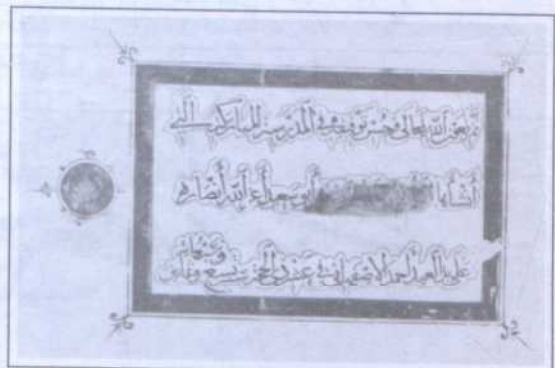 تم بعون الله تعالى وحسن توفيقه في المدرسة المباركة التي
أنشأها أبو سعيد أعز الله أنصاره
على يد العبد أحمد الاصفهاني في الحجة سنة